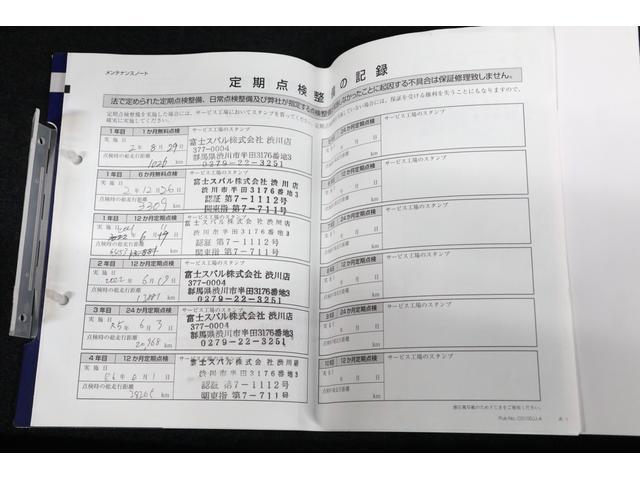 メンテナンスノート
定期点検整備の記録
法で定められた定期点検整備、日常点検整備及び弊社が指定する点検整備
しなかったことに起因する不具合は保証修理致しません。
定期点検整備を実施した場合には、サービス工場においてスタンプを
確実に実施してください。
ていない場合には、保証を受ける権利を失うことにもなりますので、
1年目 1か月無料点検 サービス工場のスタンプ
実施日 2年8月29日
点検時の総走行距離 1026 km
富士スバル株式会社 渋川店
377-0004
群馬県渋川市半田3176番地3
0279-22-3251
1年目 6か月無料点検 サービス工場のスタンプ
実施日 2年12月26日
点検時の総走行距離 3309 km
富士スバル株式会社 渋川店
渋川市半田3176番地3
認証 第7-1112号
関東指 第7-711号
1年目 12か月定期点検 サービス工場のスタンプ
実施日
点検時の総走行距離 km
富士スバル株式会社 渋川店
渋川市半田3176番地3
認証 第7-1112号
関東指 第7-711号
2年目 12か月定期点検 サービス工場のスタンプ
実施日 2022年6月19日
点検時の総走行距離 13881 km
富士スバル株式会社 渋川店
377-0004
群馬県渋川市半田3176番地3
0279-22-3251
3年目 24か月定期点検 サービス工場のスタンプ
実施日 R5年6月3日
点検時の総走行距離 20968 km
富士スバル株式会社 渋川店
377-0004
群馬県渋川市半田3176番地3
0279-22-3251
4年目 12か月定期点検 サービス工場のスタンプ
実施日 R6年6月1日
点検時の総走行距離 km
富士スバル株式会社 渋川店
渋川市半田3176番地3
認証 第7-1112号
関東指 第7-711号
24か月定期点検 サービス工場のスタンプ
年 月 日
km
12か月定期点検 サービス工場のスタンプ
年 月 日
km
24か月定期点検 サービス工場のスタンプ
年 月 日
km
12か月定期点検 サービス工場のスタンプ
年 月 日
km
か月定期点検 サービス工場のスタンプ
年 月 日
km
12か月定期点検 サービス工場のスタンプ
年 月 日
km